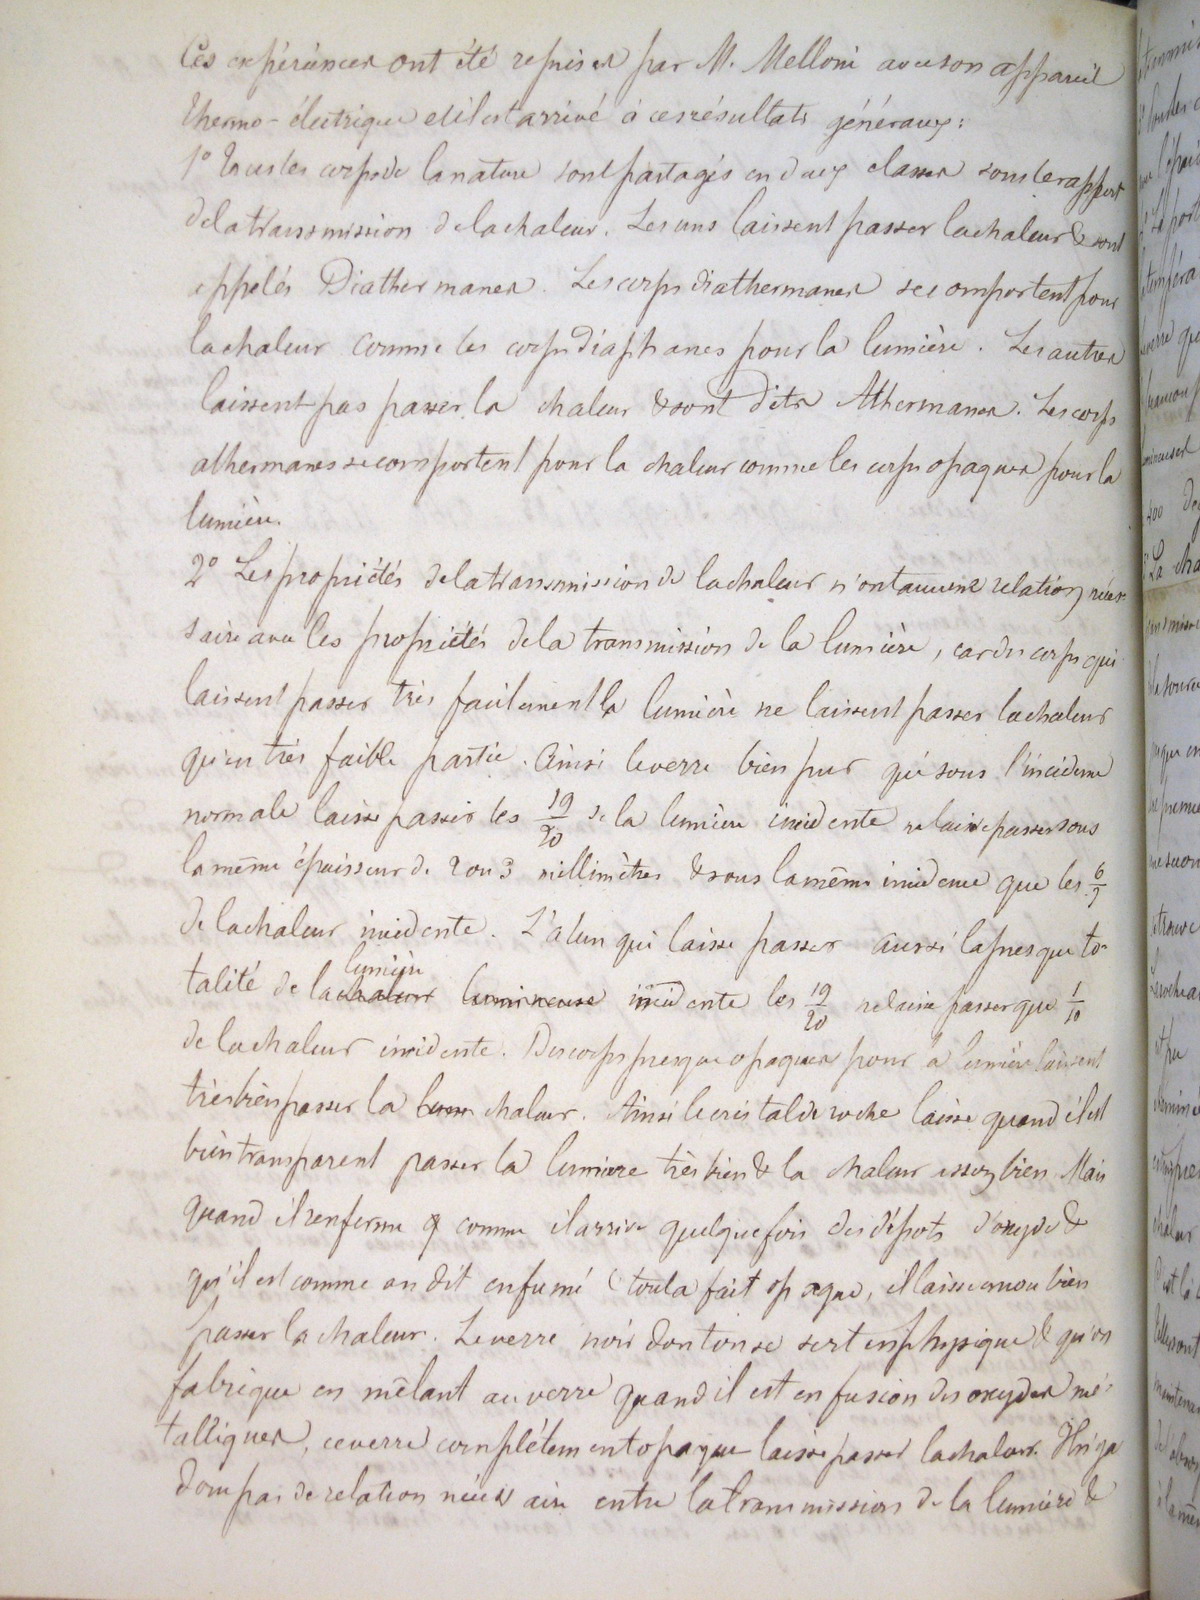 Ces expériences ont été reprises par M. Melloni avec son appareil
thermo-électrique et il est arrivé à ces résultats généraux:
1° Tous les corps de la nature sont partagés en deux classes sous le rapport
de la transmission de la chaleur. Les uns laissent passer la chaleur & sont
appelés Diathermanes. Les corps diathermanes se comportent pour
la chaleur comme les corps diaphanes pour la lumière. Les autres
laissent pas passer la chaleur & sont dits Athermanes. Les corps
athermanes se comportent pour la chaleur comme les corps opaques pour la
lumière.
2° Les propriétés de la transmission de la chaleur n'ont aucune relation néces-
saire avec les propriétés de la transmission de la lumière, car des corps qui
laissent passer très facilement la lumière ne laissent passer la chaleur
qu'en très faible partie. Ainsi le verre bien pur qui sous l'incidence
normale laisse passer les 19/20 de la lumière incidente ne laisse passer sous
la même épaisseur de 2 ou 3 millimètres & sous la même incidence que les 6/7
de la chaleur incidente. L'alun qui laisse passer aussi la presque to-
talité de la chaleur lumière lumineuse incidente les 19/20 ne laisse passer que 1/10
de la chaleur incidente. Des corps presque opaques pour la lumière laissent
très bien passer la lum chaleur. Ainsi le cristal de roche laisse quand il est
bien transparent passer la lumière très bien & la chaleur assez bien. Mais
quand il renferme comme il arrive quelquefois des dépots d'oxyde &
qu'il est comme on dit enfumé & tout a fait opaque, il laisse encore bien
passer la chaleur. Le verre noir dont on se sert en physique & qu'on
fabrique en mêlant au verre quand il est en fusion des oxydes mé-
talliques, ce verre complétement opaque laisse passer la chaleur. Il n'y a
donc pas de relation nécessaire entre la transmission de la lumière &